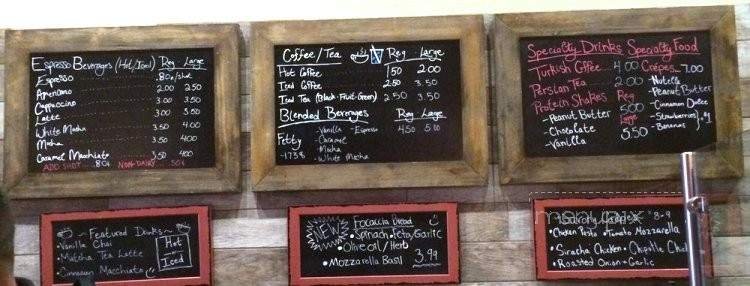 Espresso Beverages (Hot/Iced) Reg Large
Espresso .80/shot
Americano 2.00 2.50
Cappuccino 3.00 3.50
Latte 3.00 3.50
White Mocha 3.50 4.00
Mocha 3.50 4.00
Caramel Macchiato 3.50 4.00
ADD SHOT .80¢ NON-DAIRY .50¢
Coffee/Tea Reg Large
Hot Coffee 1.50 2.00
Iced Coffee 2.50 3.50
Iced Tea (Black-Fruit-Green) 2.50 3.50
Blended Beverages Reg Large
Fetty -1738
-Vanilla -Espresso 4.50 5.00
-Caramel
-Mocha
-White Mocha
Specialty Drinks
Turkish Coffee 4.00
Persian Tea 2.00
Protein Shakes Reg 5.00
-Peanut Butter Large
-Chocolate 5.50
-Vanilla
Specialty Food
Crepes 7.00
-Nutella
-Peanut Butter
-Cinnamon Dolce
-Strawberries
-Bananas
~Featured Drinks~
•Vanilla Chai
•Matcha Tea Latte
•Cinnamon Macchiato
Hot or Iced
NEW
Focaccia Bread
•Spinach, Feta, Garlic
•Olive oil/Herb
•Mozzarella Basil 3.99
8.99
•Chicken Pesto •Tomato Mozzarella
•Siracha Chicken •Chipotle Chick
•Roasted Onion + Garlic